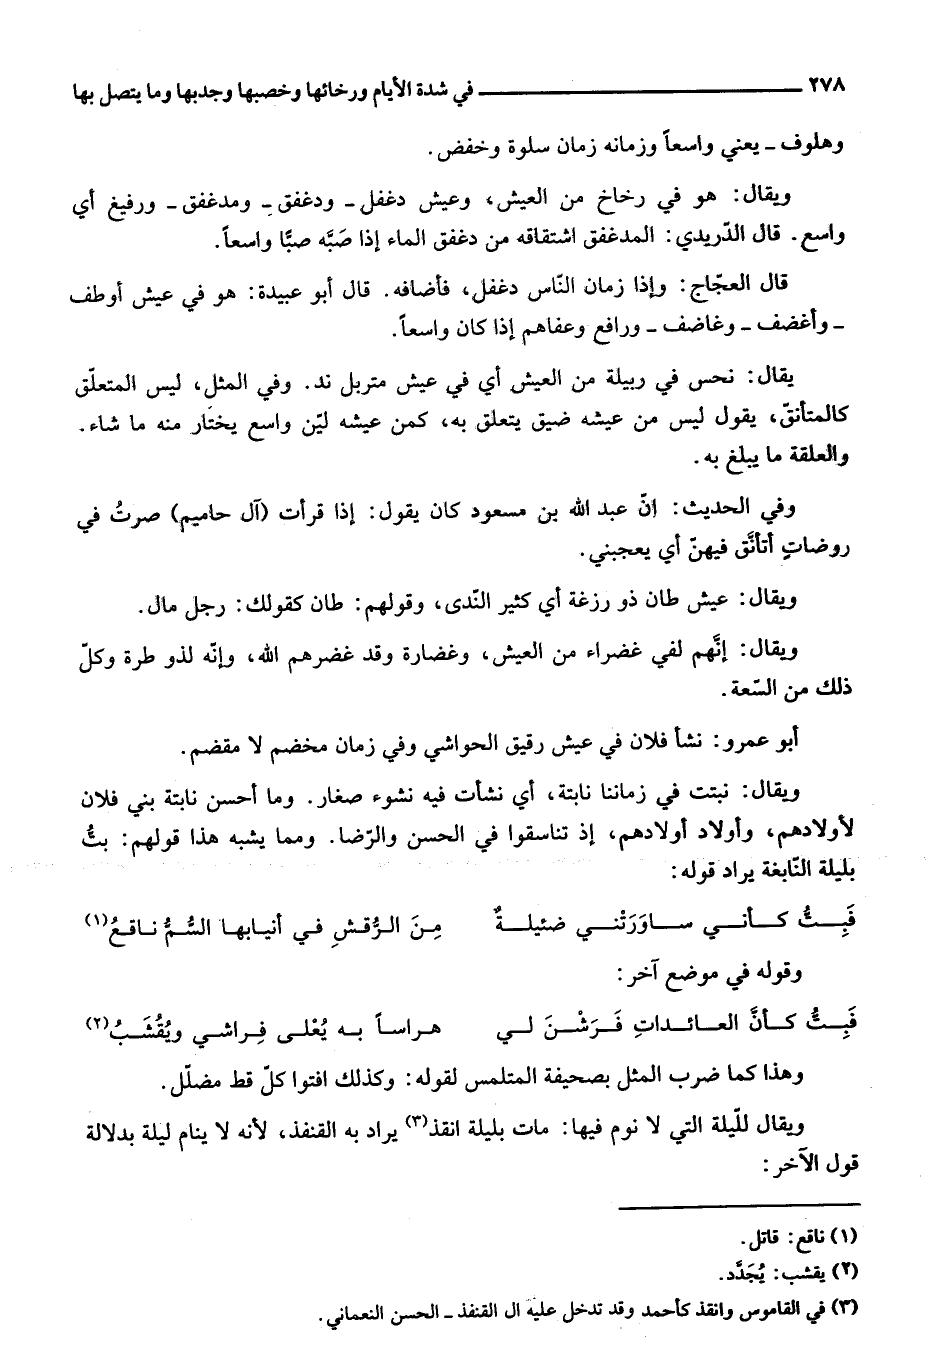 ٢٧٨ ــــــــــــــــــــــ في شدة الأيام ورخائها وخصبها وجدبها وما يتصل بها
وهلوف ـ يعني واسعاً وزمانه زمان سلوة وخفض.
ويقال: هو في رخاخ من العيش، وعيش دغفل ـ ودغفق ـ ومدغفق ـ ورفيغ أي
واسع. قال الدّريدي: المدغفق اشتقاقه من دغفق الماء إذا صَبَّه صبًّا واسعاً.
قال العجّاج: وإذا زمان النّاس دغفل، فأضافه. قال أبو عبيدة: هو في عيش أوطف
ـ وأغضف ـ وغاضف ـ ورافع وعفاهم إذا كان واسعاً.
يقال: نحس في ربيلة من العيش أي في عيش متربل ند. وفي المثل، ليس المتعلّق
كالمتأنقّ، يقول ليس من عيشه ضيق يتعلق به، كمن عيشه ليّن واسع يختار منه ما شاء.
والعلقة ما يبلغ به.
وفي الحديث: انّ عبد الله بن مسعود كان يقول: إذا قرأت (آل حاميم) صرتُ في
روضاتٍ أتأنَّق فيهنّ أي يعجبني.
ويقال: عيش طان ذو رزغة أي كثير النّدى، وقولهم: طان كقولك: رجل مال.
ويقال: إنَّهم لفي غضراء من العيش، وغضارة وقد غضرهم الله، وإنّه لذو طرة وكلّ
ذلك من السّعة.
أبو عمرو: نشأ فلان في عيش رقيق الحواشي وفي زمان مخضم لا مقضم.
ويقال: نبتت في زماننا نابتة، أي نشأت فيه نشوء صغار. وما أحسن نابتة بني فلان
لأولادهم، وأولاد أولادهم، إذ تناسقوا في الحسن والرّضا. ومما يشبه هذا قولهم: بتُّ
بليلة النّابغة يراد قوله:
فَبِـتُّ كـأنـي سـاوَرَتْنـي ضئيلـةٌ مِـنَ الـرُّقشِ فـي أنيـابهـا السُّـمُّ نـاقـعُ(١)
وقوله في موضع آخر:
فَبِـتُّ كـأنَّ العـائـداتِ فَـرَشْـنَ لـي هـراسـاً بـه يُعْلـى فِـراشـي ويُقْشَـبُ(٢)
وهذا كما ضرب المثل بصحيفة المتلمس لقوله: وكذلك افتوا كلّ قط مضلّل.
ويقال للّيلة التي لا نوم فيها: مات بليلة انقذ(٣) يراد به القنفذ، لأنه لا ينام ليلة بدلالة
قول الآخر:
(١) ناقع: قاتل.
(٢) يقشب: يُجَدَّد.
(٣) في القاموس وانقذ كأحمد وقد تدخل عليه ال القنفذ ـ الحسن النعماني.